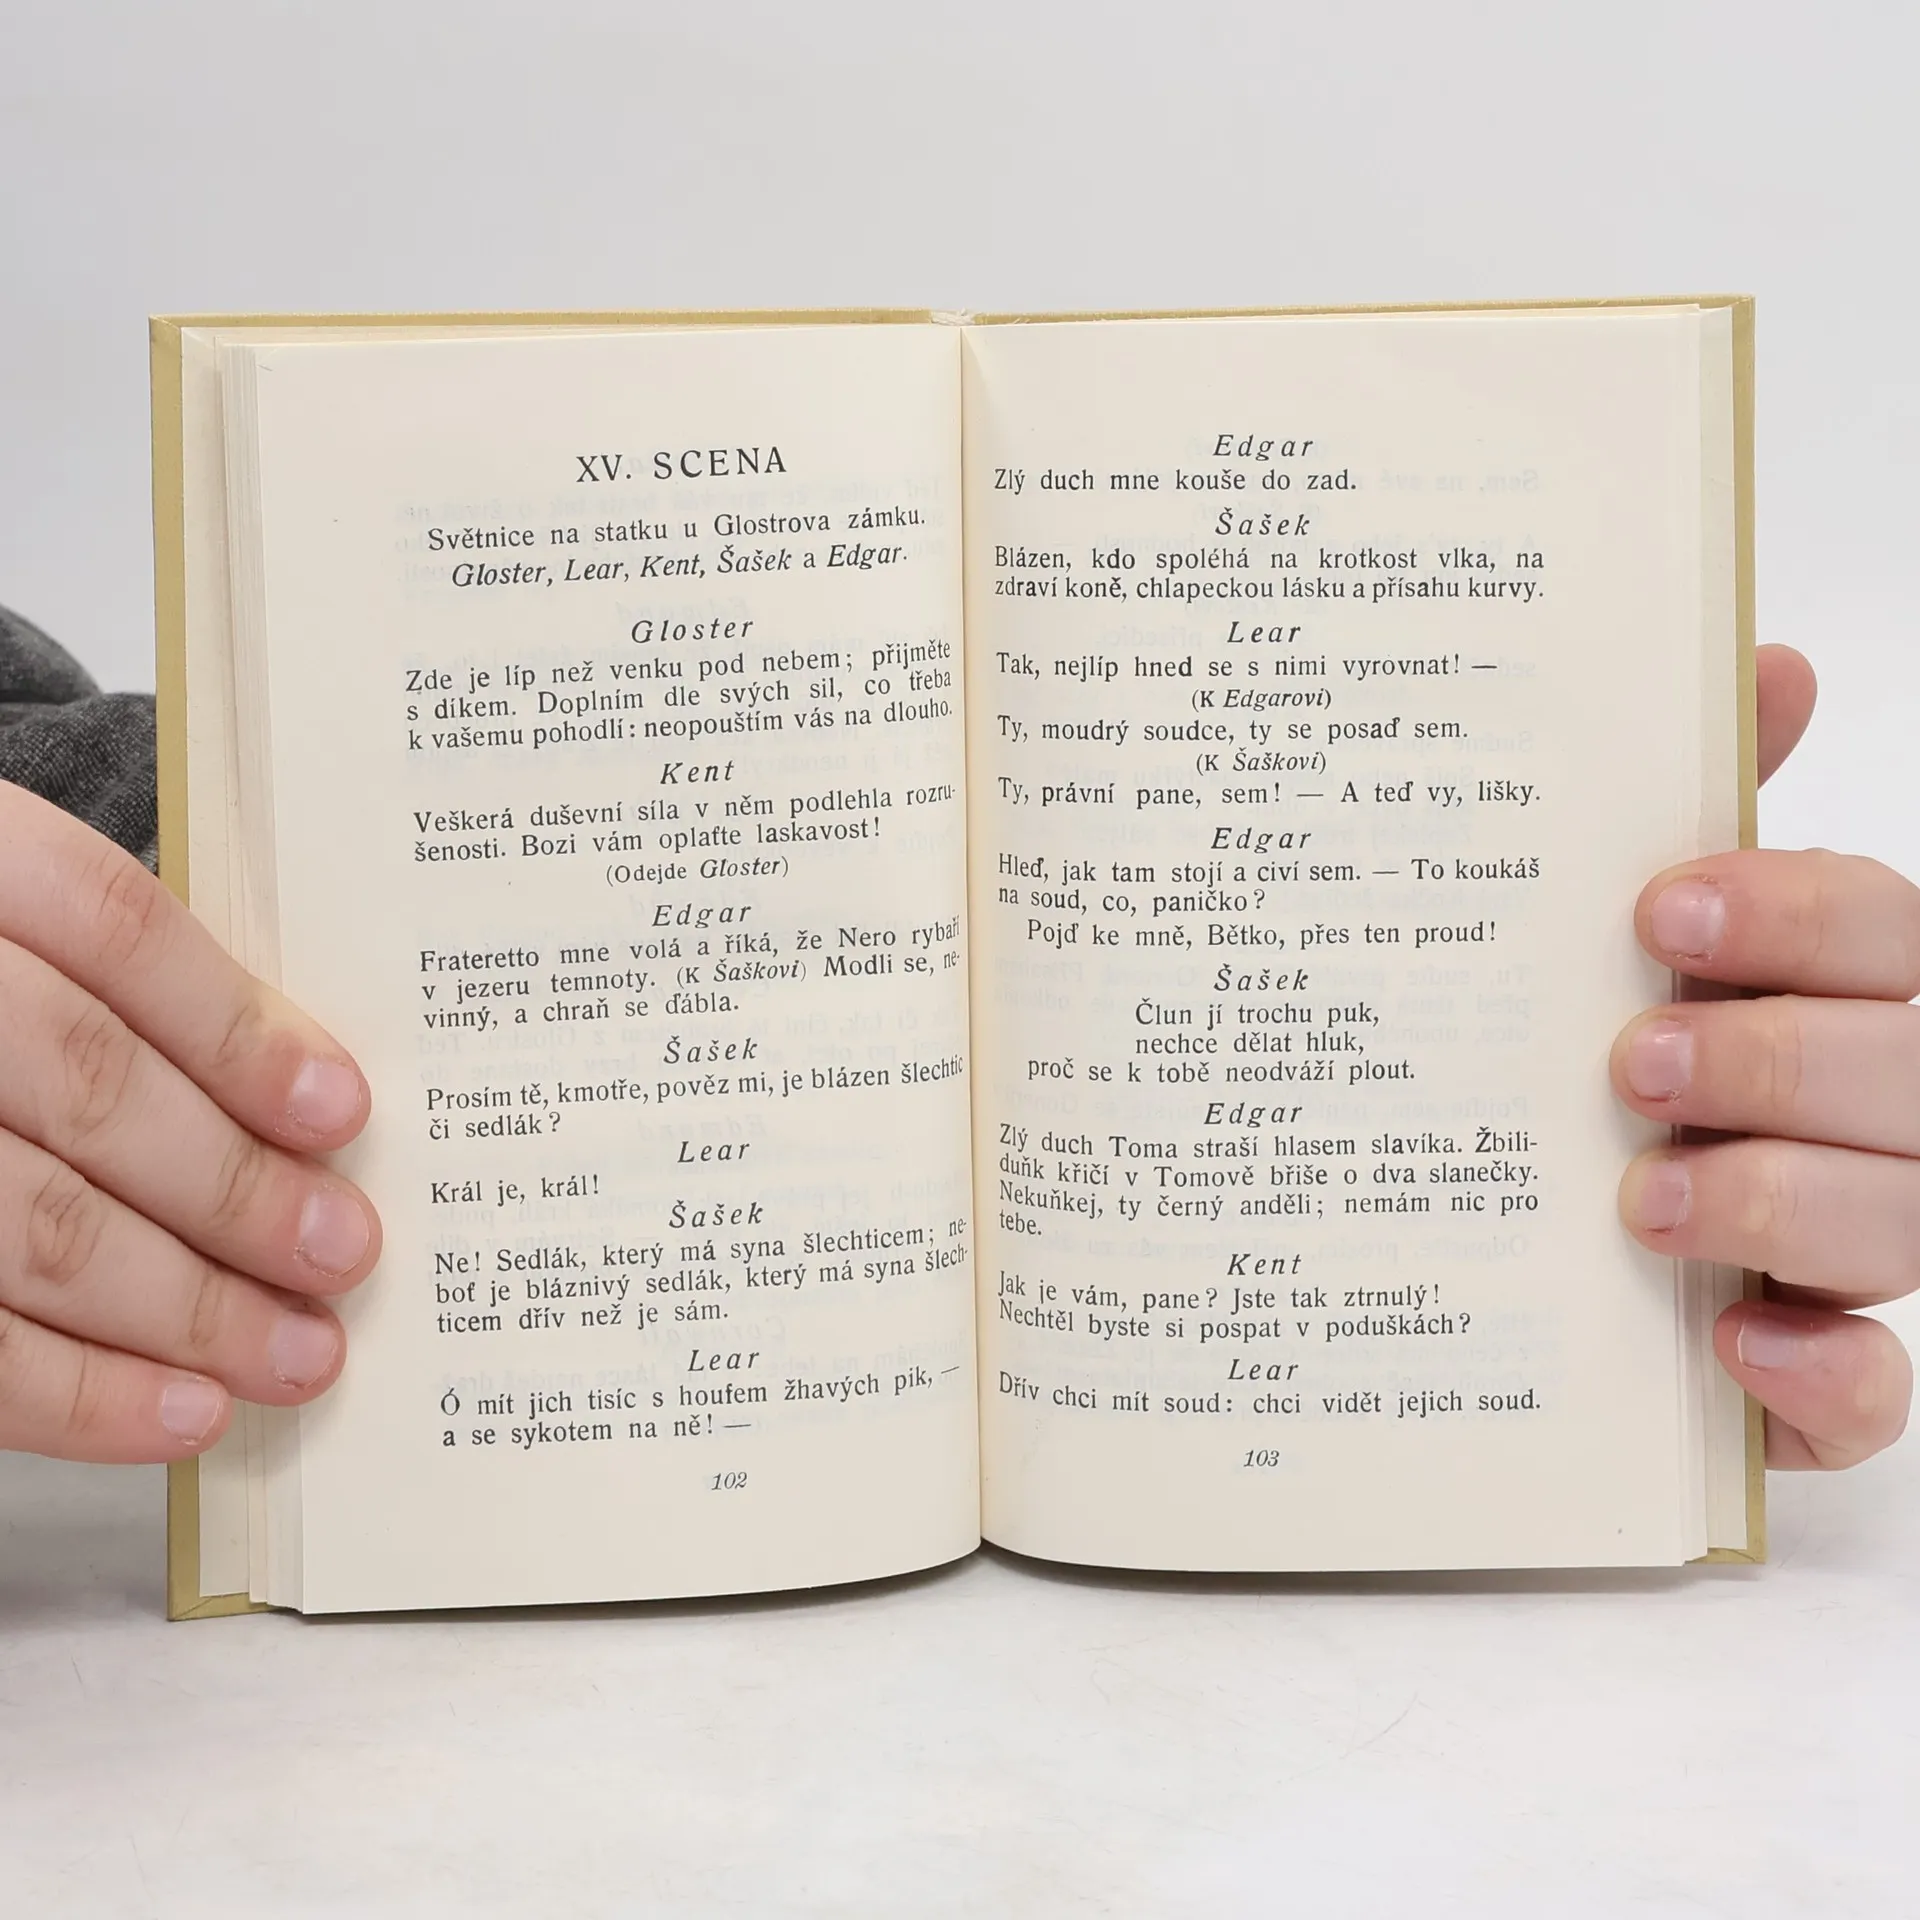 XV. SCENA
Světnice na statku u Glostrova zámku.
Gloster, Lear, Kent, Šašek a Edgar.
Gloster
Zde je líp než venku pod nebem; přijměte
s díkem. Doplním dle svých sil, co třeba
k vašemu pohodlí: neopouštím vás na dlouho.
Kent
Veškerá duševní síla v něm podlehla rozru-
šenosti. Bozi vám oplaťte laskavost!
(Odejde Gloster)
Edgar
Frateretto mne volá a říká, že Nero rybaří
v jezeru temnoty. (K Šaškovi) Modli se, ne-
vinný, a chraň se ďábla.
Šašek
Prosím tě, kmotře, pověz mi, je blázen šlechtic
či sedlák?
Lear
Král je, král!
Šašek
Ne! Sedlák, který má syna šlechticem; ne-
boť je bláznivý sedlák, který má syna šlech-
ticem dřív než je sám.
Lear
Ó mít jich tisíc s houfem žhavých pik, —
a se sykotem na ně! —
102
Edgar
Zlý duch mne kouše do zad.
Šašek
Blázen, kdo spoléhá na krotkost vlka, na
zdraví koně, chlapeckou lásku a přísahu kurvy.
Lear
Tak, nejlíp hned se s nimi vyrovnat! —
(K Edgarovi)
Ty, moudrý soudce, ty se posaď sem.
(K Šaškovi)
Ty, právní pane, sem! — A teď vy, lišky.
Edgar
Hleď, jak tam stojí a civí sem. — To koukáš
na soud, co, paničko?
Pojď ke mně, Bětko, přes ten proud!
Šašek
Člun jí trochu puk,
nechce dělat hluk,
proč se k tobě neodváží plout.
Edgar
Zlý duch Toma straší hlasem slavíka. Žbili-
duňk křičí v Tomově břiše o dva slanečky.
Nekuňkej, ty černý anděli; nemám nic pro
tebe.
Kent
Jak je vám, pane? Jste tak ztrnulý!
Nechtěl byste si pospat v poduškách?
Lear
Dřív chci mít soud: chci vidět jejich soud.
103